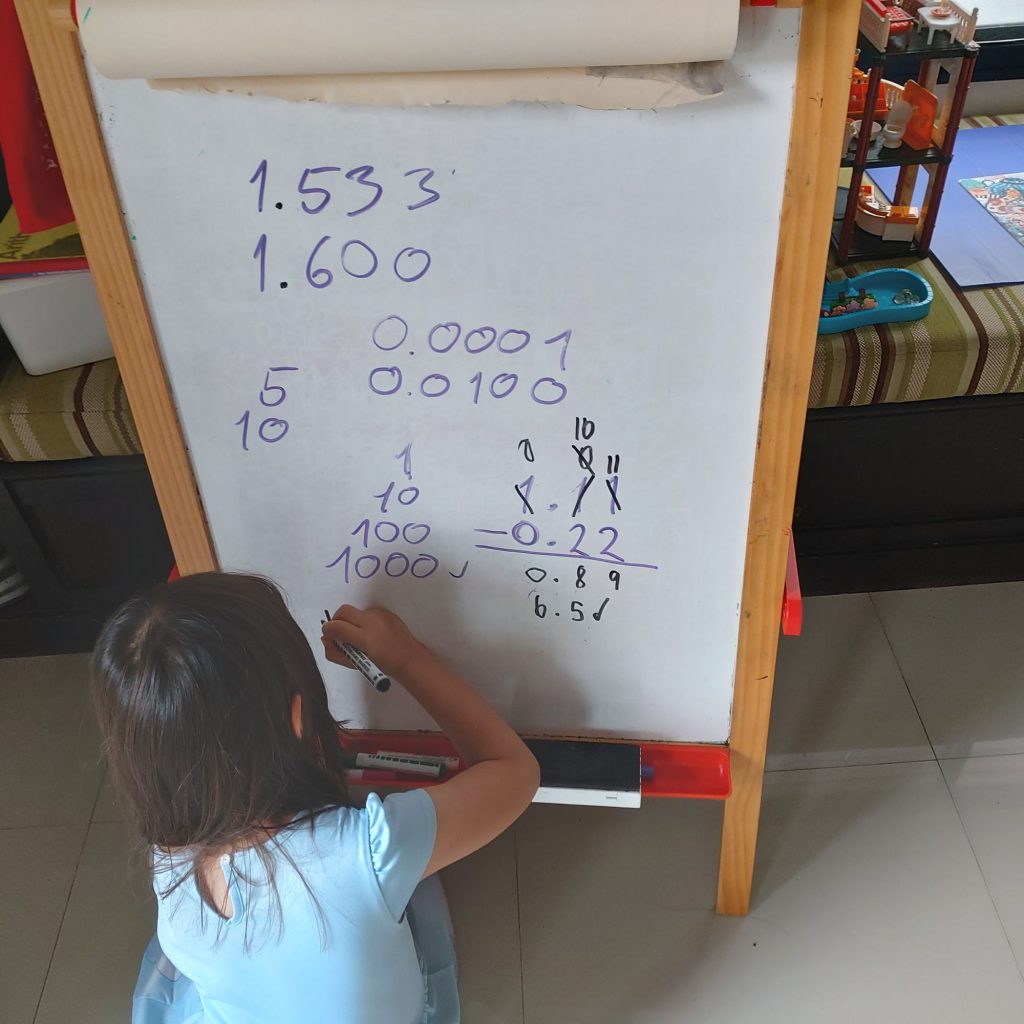 1.533
1.600
0.0001
0.0100
5
10
1
10
100
1000✓
10
0 0 11
1.11
-0.22
0.89
6.5✓
Arith